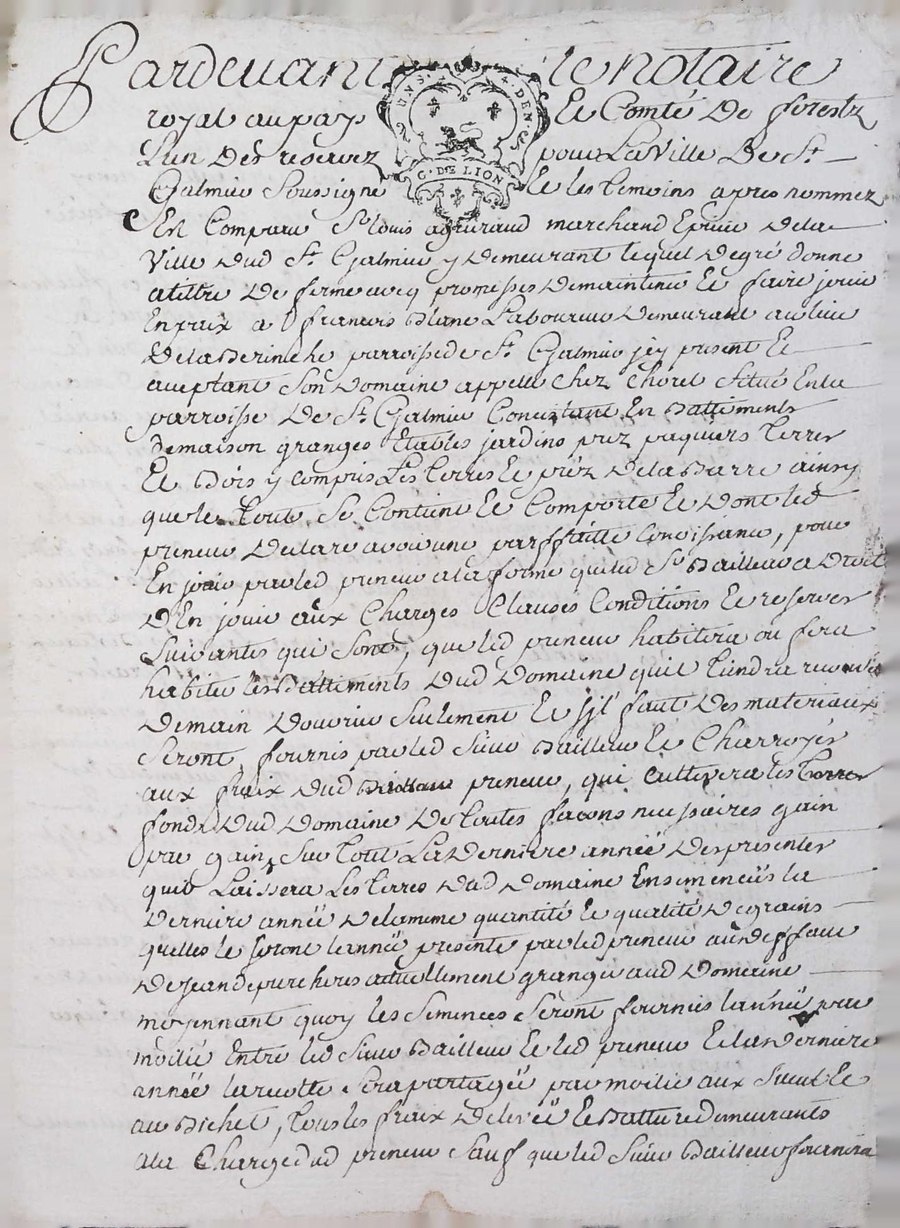 Pardevant le notaire
royal au pays et Comté De forestz
L'un Des reservez pour La Ville De St
Galmier Soussigné et les temoins apres nommez
UN S. DEN.
G. DE LION
En Comparu Sr louis marchand Epicier Dela
Ville Dud St Galmier y Demeurant lequel Degré donne
atiltre De ferme aveq promesses Demaintenir Et faire jouir
En paix a françois Blanc Laboureur Demeurant au lieu
Dela parroisse de St Galmier jcy present Et
aceptant Son Domaine appellé Chez Choret Situé En la
parroisse De St Galmier Concistant En Battiments
Demaison granges Etables jardins prez paquiers terres
Et Bois y compris Les terres Et prez Dela Barre ainsy
que le tout Se Contient Et Comporte Et Dont led
preneur Declare avoir une parffaitte Conoissance, pour
En jouir par led preneur ala forme que led Sr Bailleur a Droit
D'En jouir aux Charges Clauses Conditions Et reserves
Suivantes qui Sont, que led preneur habitera ou fera
habiter les Battiments Dud Domaine quil tiendra
Demain Douvrier Seulement Et Sil faut Des materiaux
Seront fournis par led Sieur Bailleur Et Charroyés
aux fraix Dud preneur, qui Cultivera les terres
fonds Dud Domaine De toutes façons necessaires gain
par gain, Sur tout La Derniere année Des presentes
quil Laissera Les terres Dud Domaine Ensemencés la
Derniere année Delameme quantité Et qualité De grains
quelles le Seront lannéé presente par led preneur au Deffaut
De Jean actuellement granger aud Domaine
moyennant quoy les Semences Seront fournies lannéé par
moitié Entre led Sieur Bailleur Et led preneur Et la Derniere
année la recolte Sera partagéé par moitié aux
au Bichet, tous les fraix De levéé Et Batture Demeurants
ala Charge dud preneur Sauf que led Sieur Bailleur fournira